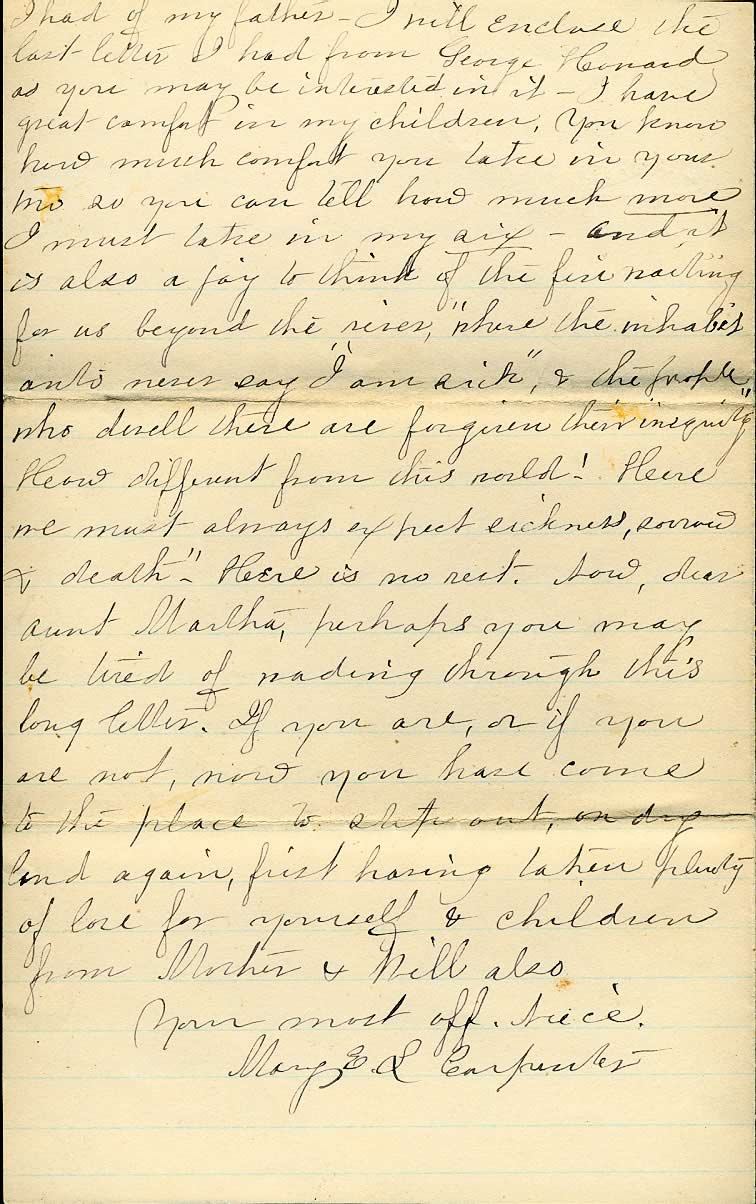 I had of my father - I will enclose the
last letter I had from George Howard
as you may be interested in it - I have
great comfort in my children, You know
how much comfort you take in your
two so you can tell how much more
I must take in my six - and it
is also a joy to think of the five waiting
for us beyond the "river," "where the inhabit
ants never say "I am sick", & the people
who dwell there are forgiven their iniquity"
How different from this world! Here
we must always expect sickness, sorrow
& death" - Here is no rest. Now, dear
aunt Martha, perhaps you may
be tired of reading through this
long letter. If you are, or if you
are not, now you have come
to the place to step out, on dry
land again, first having taken plenty
of love for yourself & children
from Mother & Will also
Your most aff. Niece.
Mary E L Carpenter